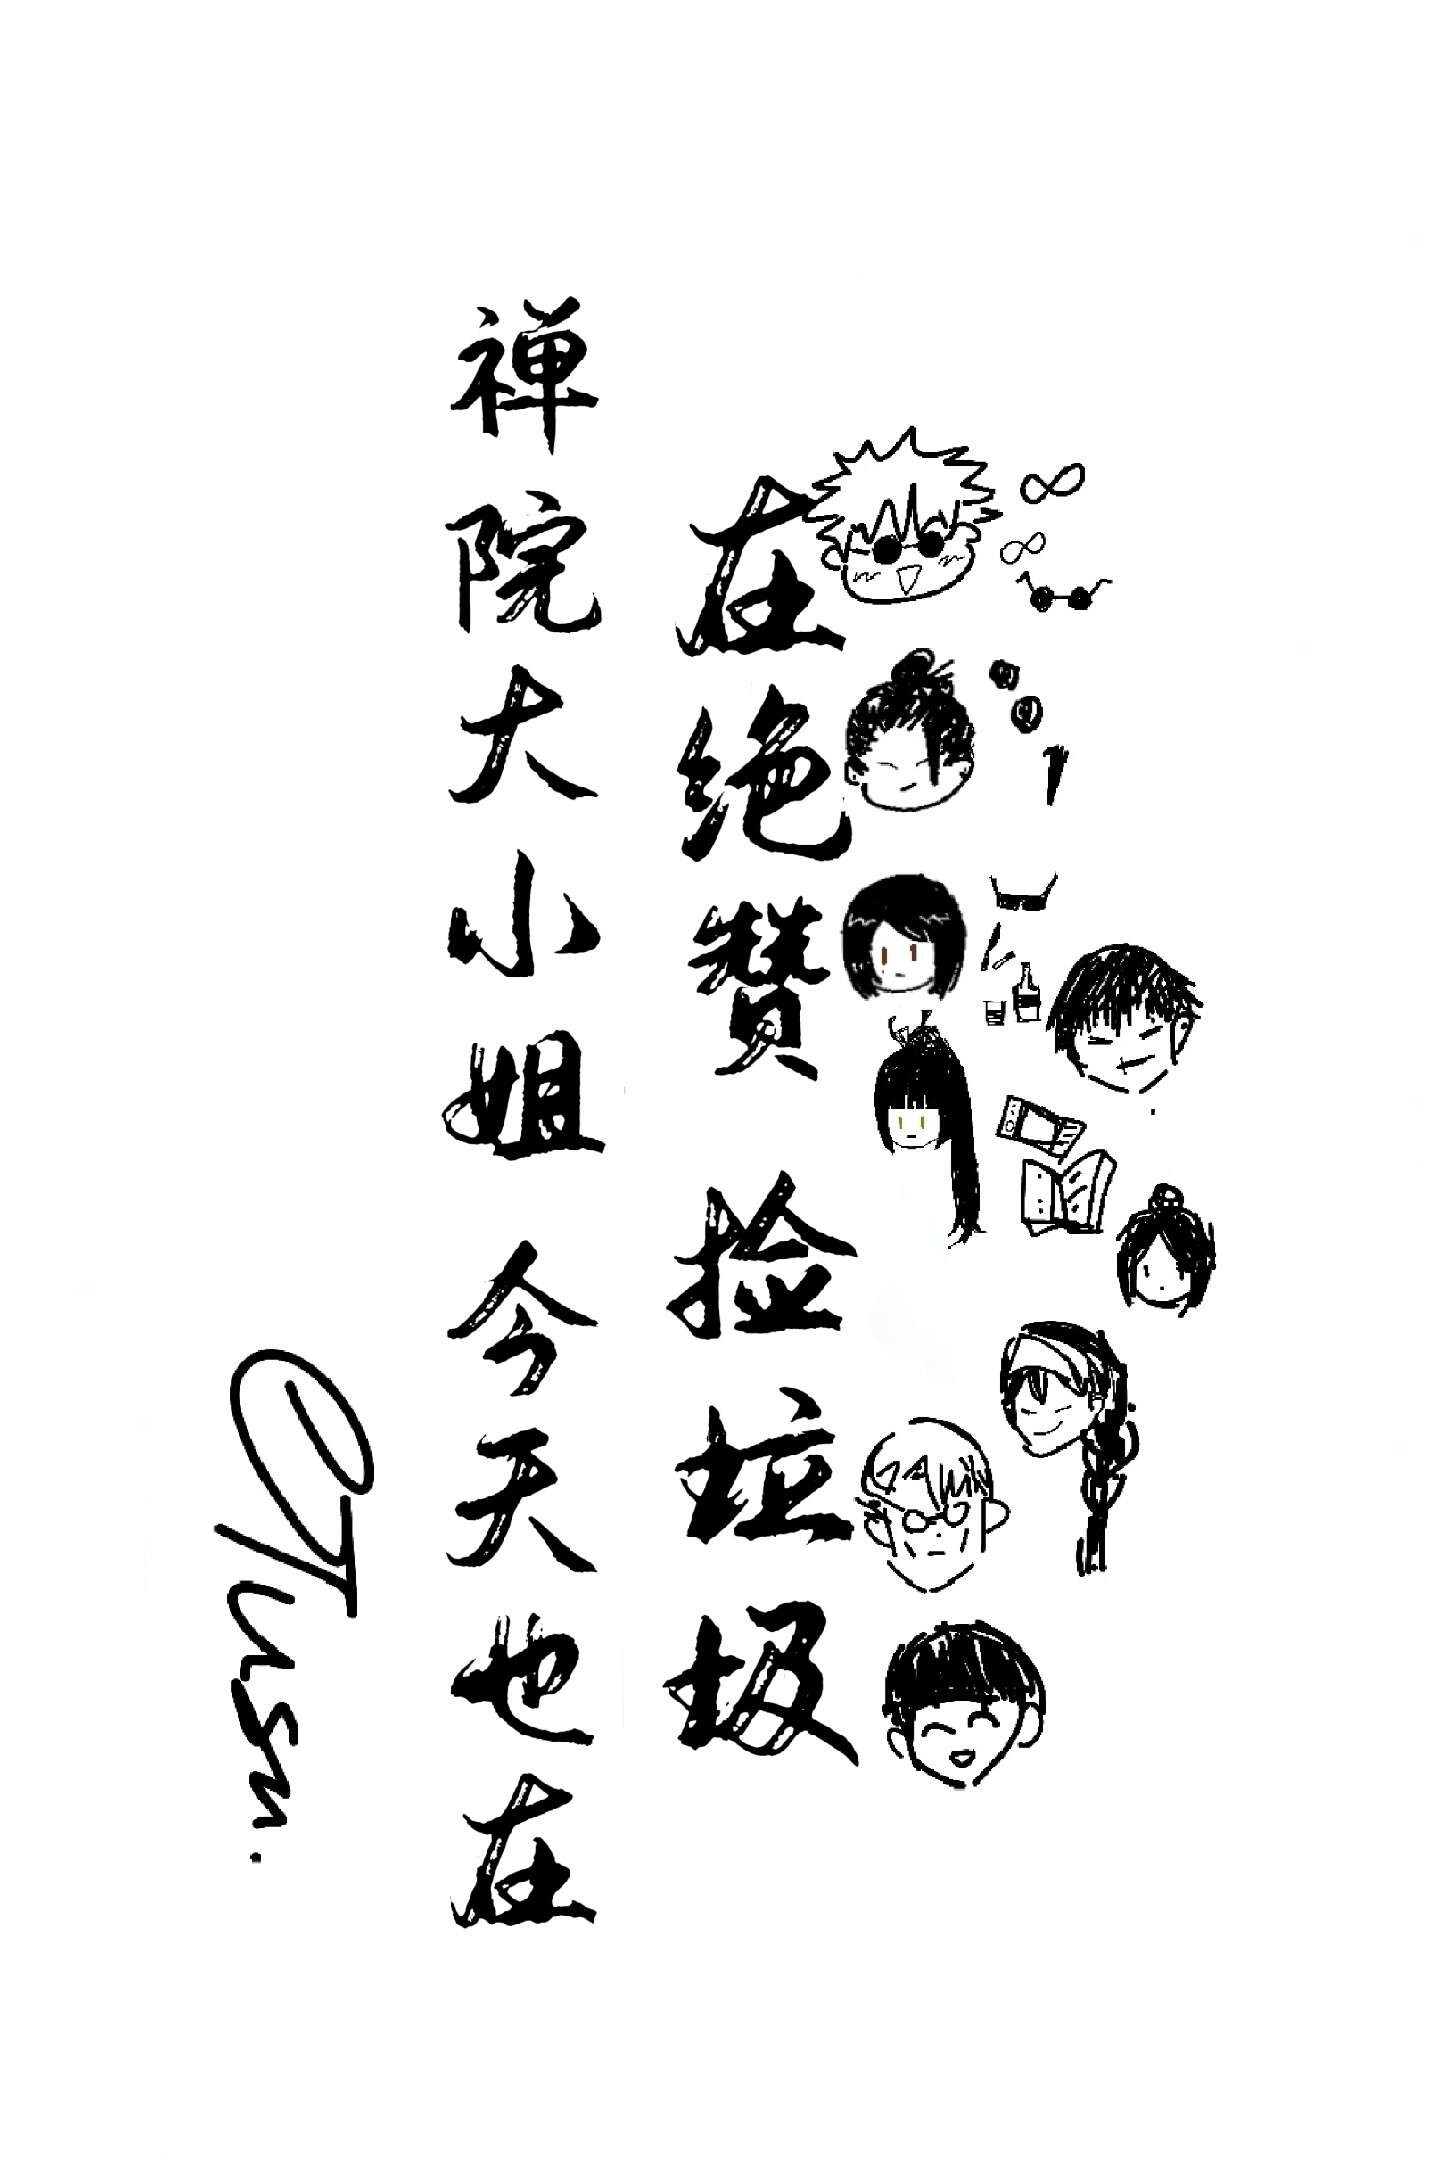 禅院大小姐今天也在
在绝赞捡垃圾